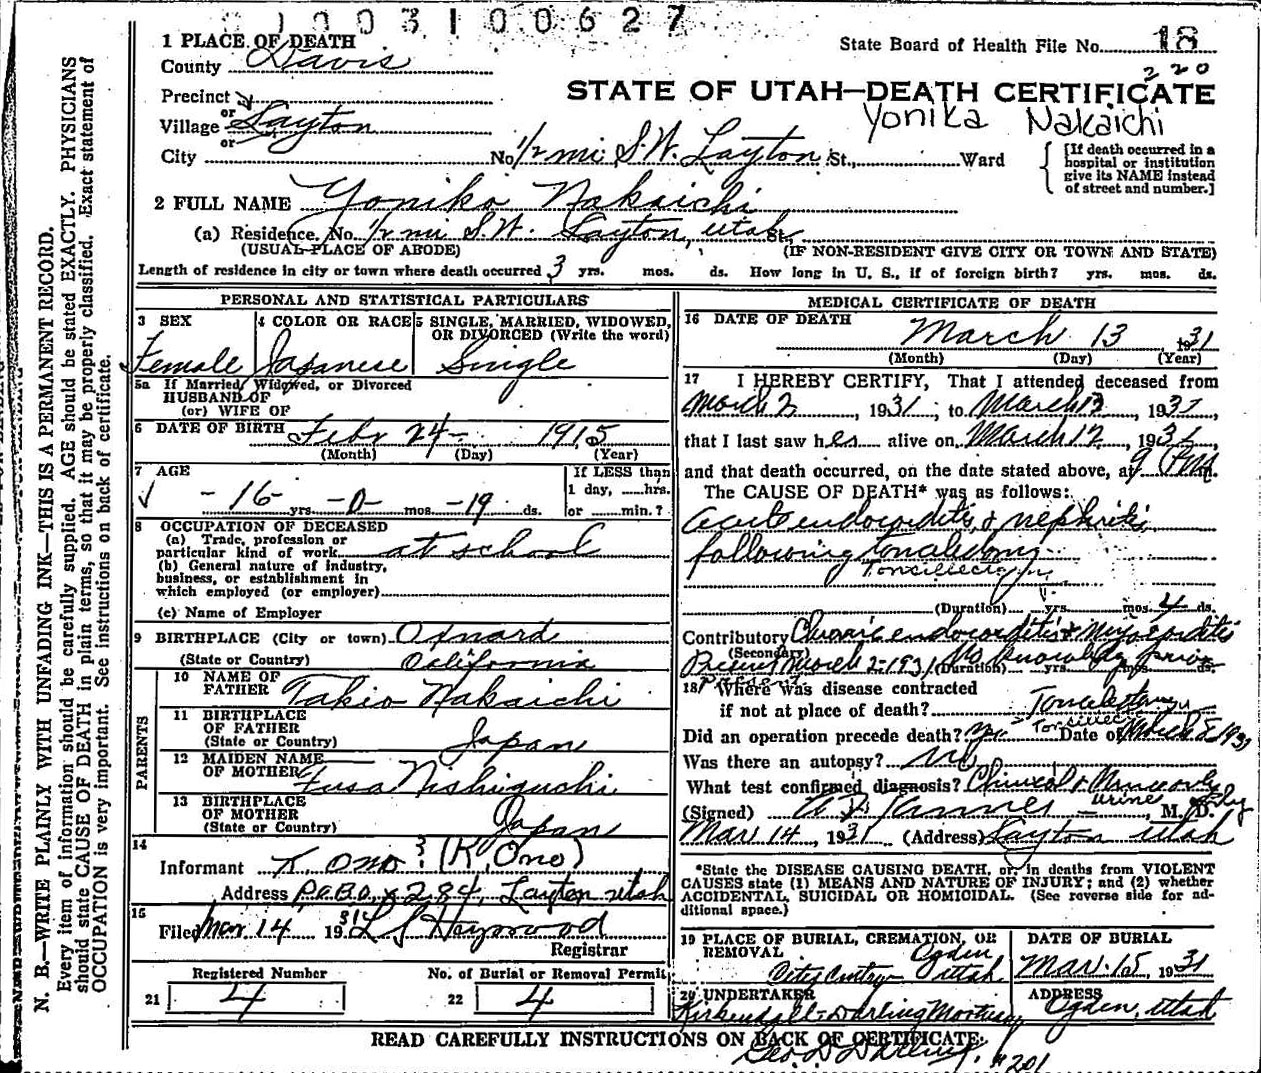 1003100627
1 PLACE OF DEATH
County Davis
State Board of Health File No. 18
220
STATE OF UTAH—DEATH CERTIFICATE
Yonika Nakaichi
Precinct
or
Village Layton
or
City No. 1/2 mi S.W. Layton St., Ward
[If death occurred in a
hospital or institution
give its NAME instead
of street and number.]
2 FULL NAME Yoniko Nakaichi
(a) Residence. No. 1/2 mi S.W. Layton, Utah St.,
(USUAL PLACE OF ABODE) (IF NON-RESIDENT GIVE CITY OR TOWN AND STATE)
Length of residence in city or town where death occurred 3 yrs. mos. ds. How long in U. S., if of foreign birth? yrs. mos. ds.
PERSONAL AND STATISTICAL PARTICULARS
3 SEX
Female
4 COLOR OR RACE
Japanese
5 SINGLE, MARRIED, WIDOWED,
OR DIVORCED (Write the word)
Single
5a If Married, Widowed, or Divorced
HUSBAND OF
(or) WIFE OF
6 DATE OF BIRTH Febr 24 - 1915
(Month) (Day) (Year)
7 AGE
- 16 yrs. - 0 - mos. - 19 ds.
If LESS than
1 day, hrs.
or min.?
8 OCCUPATION OF DECEASED
(a) Trade, profession or
particular kind of work at school
(b) General nature of industry,
business, or establishment in
which employed (or employer)
(c) Name of Employer
9 BIRTHPLACE (City or town) Oxnard
(State or Country) California
PARENTS
10 NAME OF
FATHER Takio Nakaichi
11 BIRTHPLACE
OF FATHER
(State or Country) Japan
12 MAIDEN NAME
OF MOTHER Fusa Nishiguchi
13 BIRTHPLACE
OF MOTHER
(State or Country) Japan
14
Informant K. Ono ? (K. Ono)
Address P.O. Box 284, Layton Utah
15
Filed Mar. 14 1931 L S Heywood
Registrar
Registered Number
21 4
No. of Burial or Removal Permit
22 4
MEDICAL CERTIFICATE OF DEATH
16 DATE OF DEATH
March 13 1931
(Month) (Day) (Year)
17 I HEREBY CERTIFY, That I attended deceased from
March 2, 1931, to March 13, 1931,
that I last saw her alive on March 12, 1931,
and that death occurred, on the date stated above, at 9 PM.
The CAUSE OF DEATH* was as follows:
Acute endocarditis & nephritis
following
(Duration) yrs. mos. 4 ds.
Contributory Chronic endocarditis & Myocarditis
(Secondary)
Present March 2-1931 (Duration) No knowledge prior yrs. mos. ds.
18 Where was disease contracted
if not at place of death?
Did an operation precede death? yes Date of March 8, 1931
Was there an autopsy? No
What test confirmed diagnosis?
urine
(Signed) M. D.
Mar 14, 1931 (Address) Layton Utah
*State the DISEASE CAUSING DEATH, or, in deaths from VIOLENT
CAUSES state (1) MEANS AND NATURE OF INJURY; and (2) whether
ACCIDENTAL, SUICIDAL OR HOMICIDAL. (See reverse side for ad-
ditional space.)
19 PLACE OF BURIAL, CREMATION, OR
REMOVAL Ogden
City Cemetery Utah
DATE OF BURIAL
Mar. 15, 1931
20 UNDERTAKER
Kirkendall-Darling Mortuary
ADDRESS
Ogden, Utah
READ CAREFULLY INSTRUCTIONS ON BACK OF CERTIFICATE.
Geo. D Darling. #201
N. B.—WRITE PLAINLY WITH UNFADING INK—THIS IS A PERMANENT RECORD.
Every item of information should be carefully supplied. AGE should be stated EXACTLY. PHYSICIANS
should state CAUSE OF DEATH in plain terms, so that it may be properly classified. Exact statement of
OCCUPATION is very important. See instructions on back of certificate.